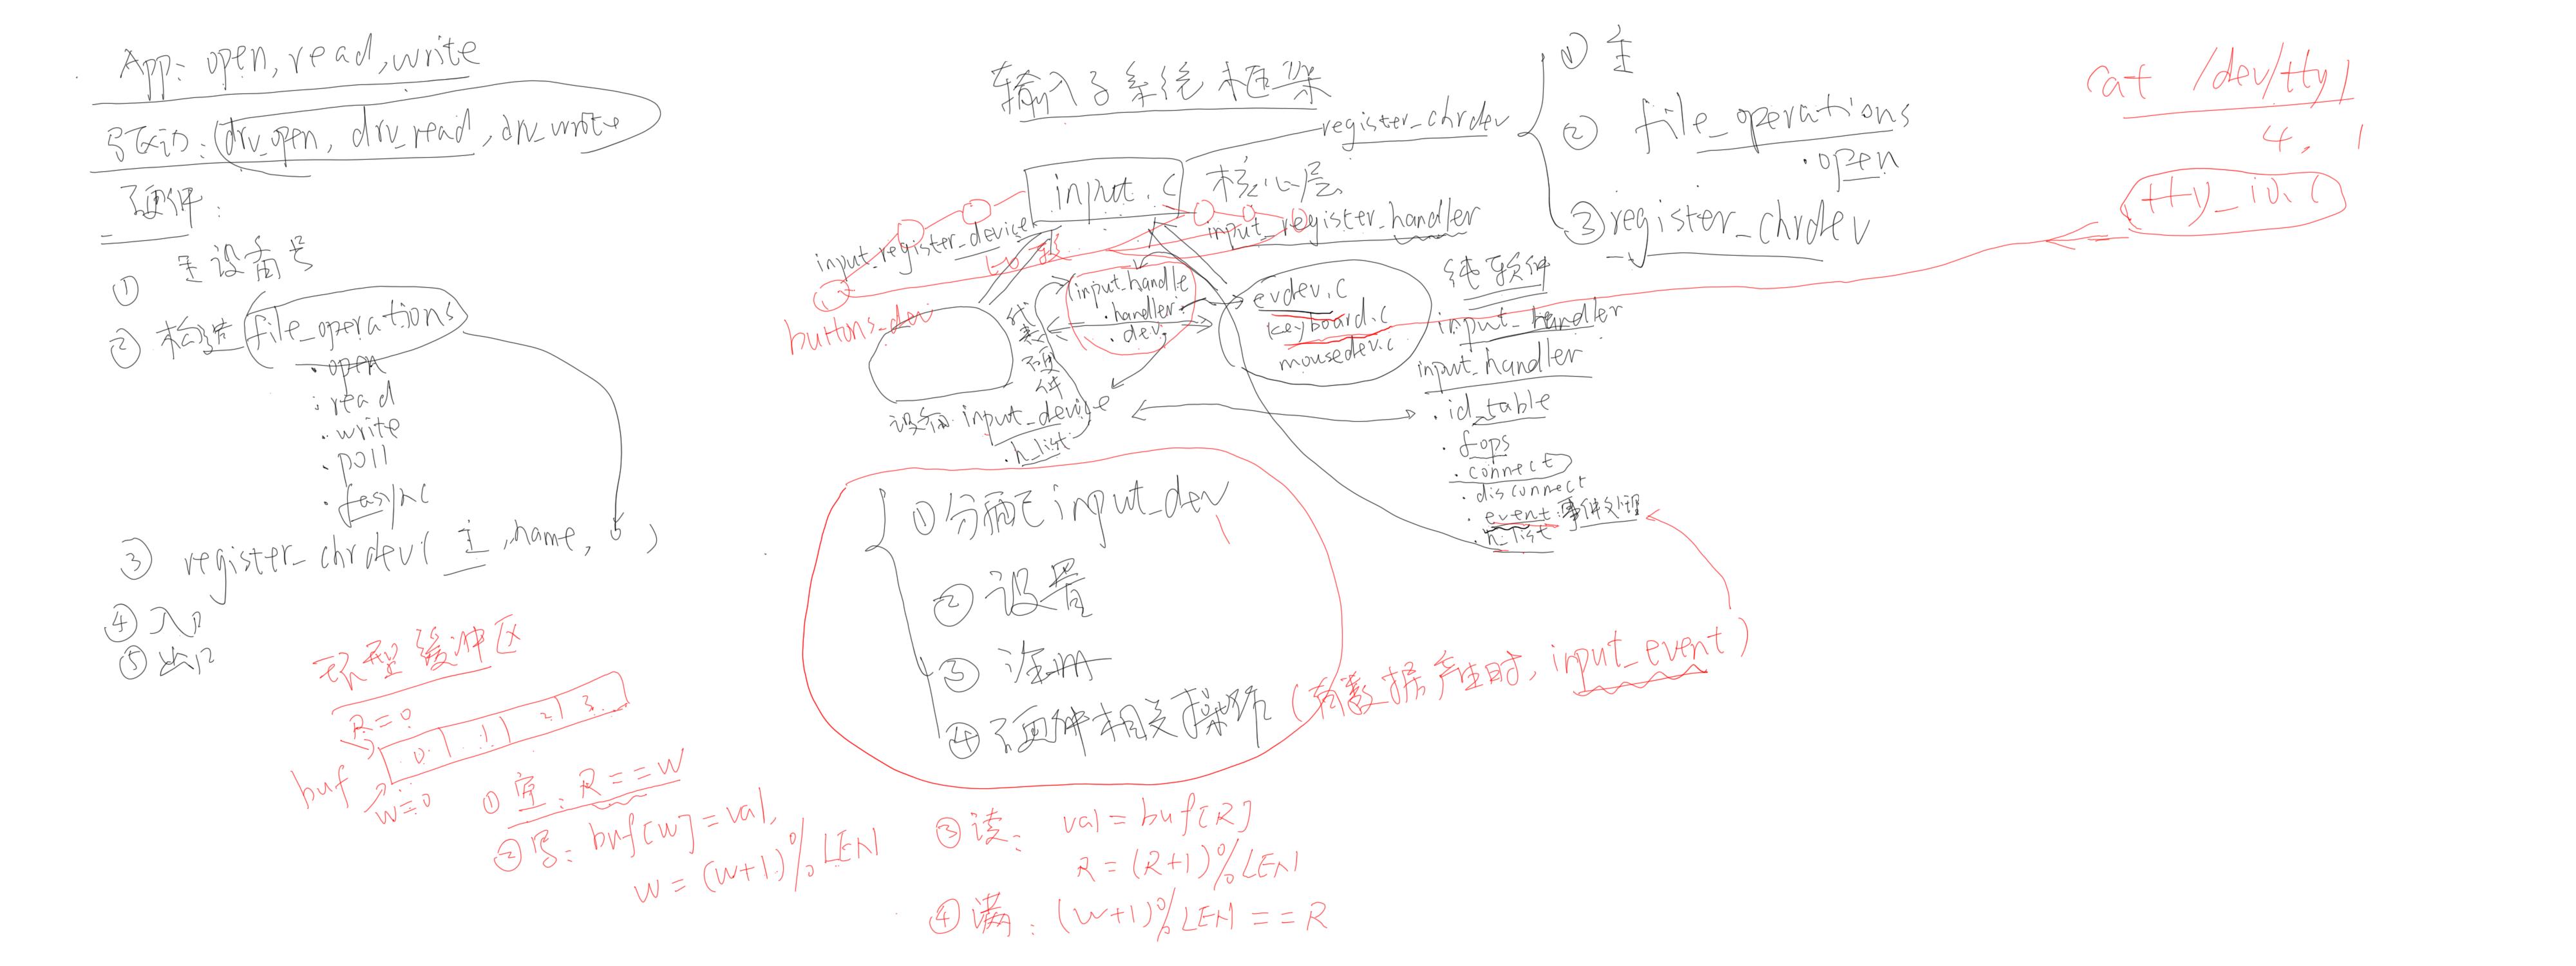 App: open, read, write
写驱动: (drv_open, drv_read, drv_write
硬件:
① 主设备号
② 构造 file_operations
.open
.read
.write
.poll
.fasync
③ register_chrdev( 主, name, )
④ 入口
⑤ 出口
环型缓冲区
R=0
buf 0 1 2 3
w=0
① 空: R==W
② 写: buf[w]=val,
w=(w+1)%LEN
③ 读: val=buf[R]
R=(R+1)%LEN
④ 满: (w+1)%LEN==R
输入子系统框架
input.c 核心层
register_chrdev
① 主
② file_operations
.open
③ register_chrdev
input_register_device
input_register_handler
比较
buttons_dev
代表硬件
input_handle
.handler
.dev
evdev.c
keyboard.c
mousedev.c
纯软件
input_handler
input_handler
.id_table
.fops
.connect
.disconnect
.event: 事件处理
.h_list
设备: input_device
.h_list
① 分配 input_dev
② 设置
③ 注册
④ 硬件相关操作 (有数据产生时, input_event)
cat /dev/tty1
4, 1
tty_io.c